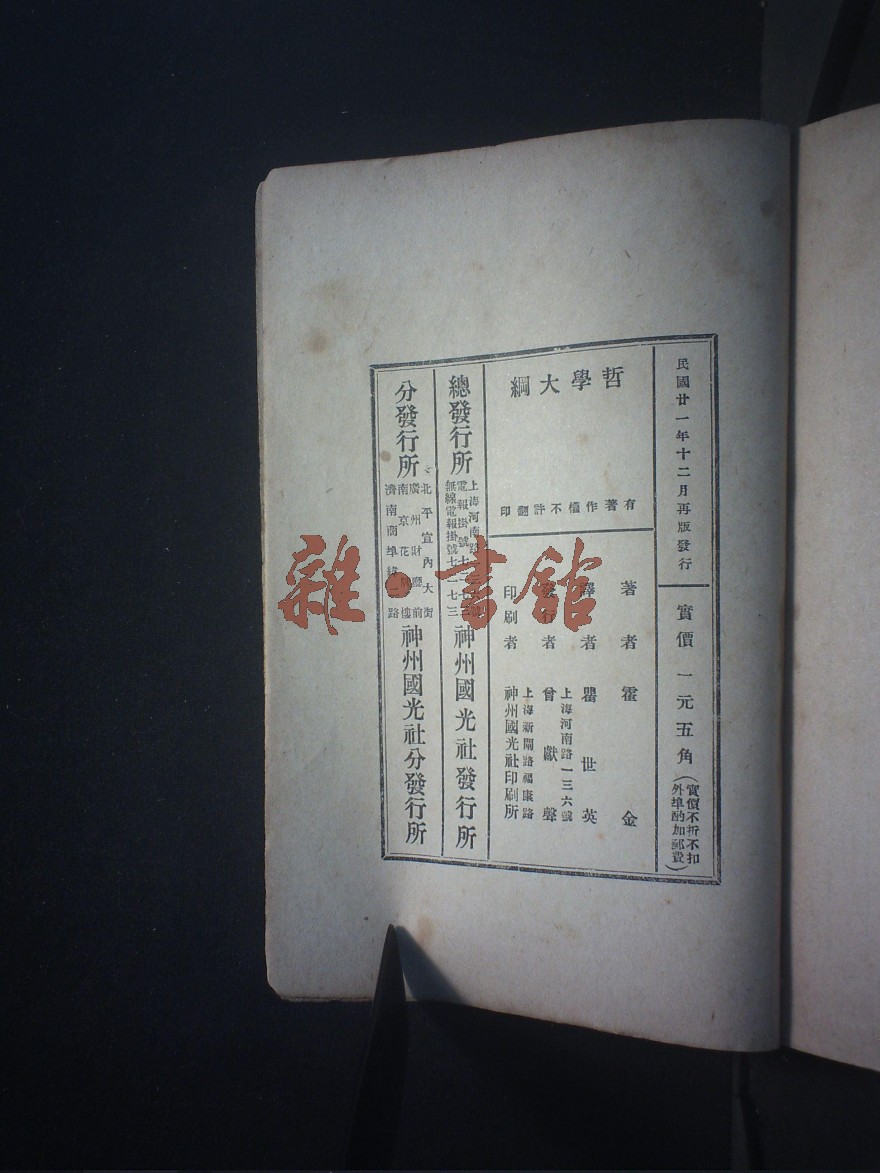 民國廿一年十二月再版發行
實價一元五角
(實價不折不扣
外埠酌加郵費)
哲學大綱
有著作權不許翻印
著者霍金
譯者瞿世英
發行者曾獻聲
上海河南路一三六號
印刷者神州國光社印刷所
上海新閘路福康路
總發行所
上海河南路
電報掛號七
無線電報掛號七一七三
神州國光社發行所
分發行所
北平宣內大街
廣州財廳前
南京花牌樓
濟南商埠緯路
神州國光社分發行所
雜·書館